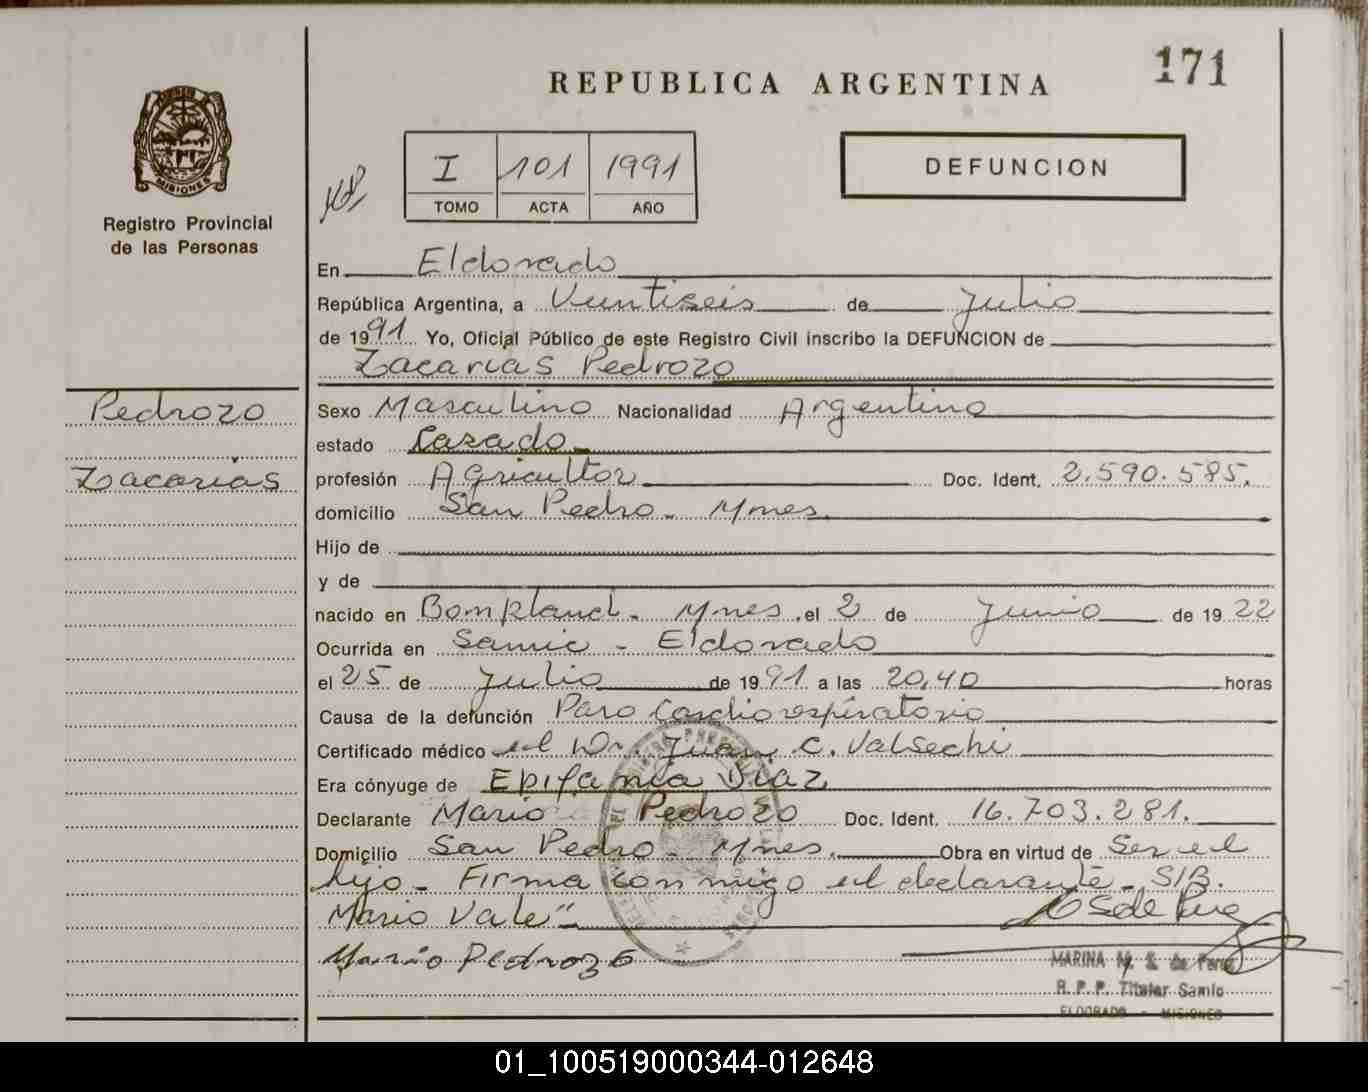 171
REPUBLICA ARGENTINA
MISIONES
Registro Provincial
de las Personas
I 101 1991
TOMO ACTA AÑO
DEFUNCION
En Eldorado
República Argentina, a Veintiseis de Julio
de 1991 Yo, Oficial Público de este Registro Civil inscribo la DEFUNCION de
Zacarias Pedrozo
Pedrozo
Zacarias
Sexo Masculino Nacionalidad Argentino
estado Casado
profesión Agricultor Doc. Ident. 2.590.585.
domicilio San Pedro - Mnes.
Hijo de
y de
nacido en Bompland - Mnes. el 2 de Junio de 1922
Ocurrida en Samic - Eldorado
el 25 de Julio de 1991 a las 20,40 horas
Causa de la defunción Paro Cardiorespiratorio
Certificado médico el Dr. Juan C. Valsechi
Era cónyuge de Epifania Diaz
Declarante Mario Pedrozo Doc. Ident. 16.703.281.
Domicilio San Pedro - Mnes. Obra en virtud de Ser el
hijo - Firma conmigo el declarante - S/B.
Mario Vale"
Mario Pedrozo
MARINA M. S. de
R. P. P. Titular Samic
ELDORADO - MISIONES
01_100519000344-012648